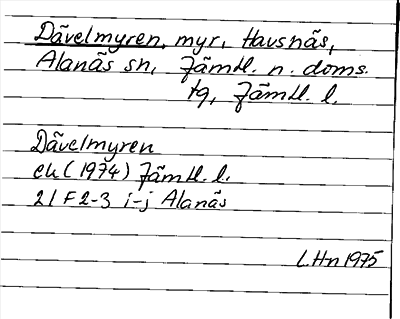 Dävelmyren, myr, Havsnäs,
Alanäs sn, Jämtl. n. doms.
tg, Jämtl. l.
Dävelmyren
ek (1974) Jämtl. l.
21 F 2-3 i-j Alanäs
L.Hn 1975